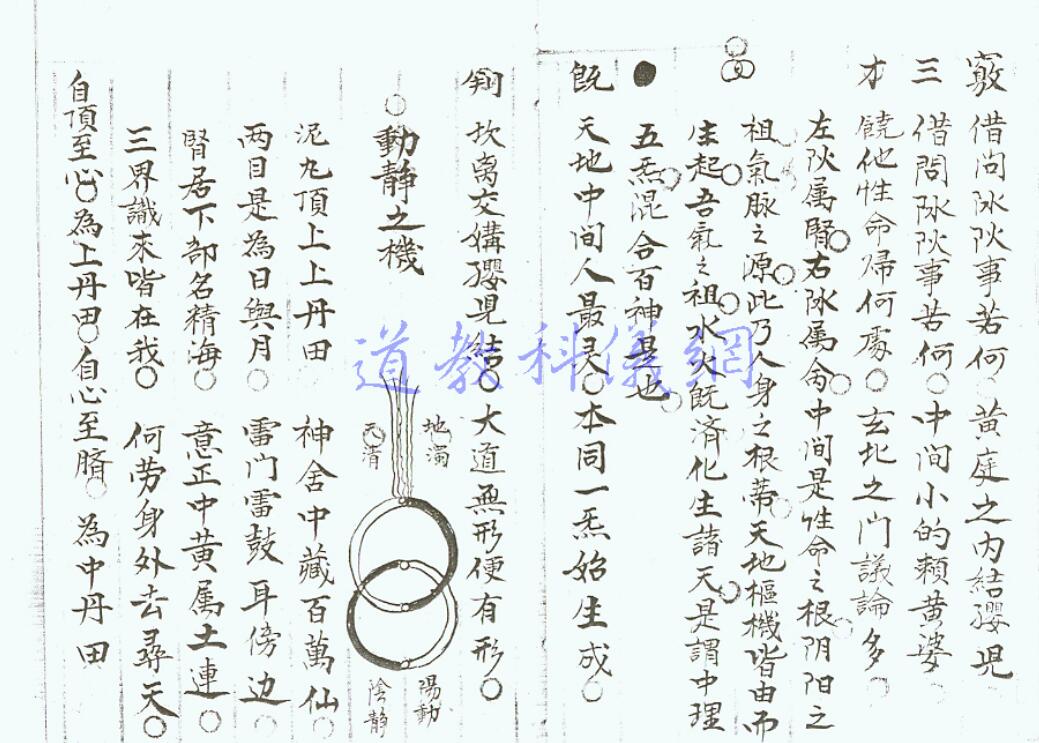 竅 借问阦阦事若何 黄庭之内結孾児
三 借問阦阦事若何 中间小的赖黄婆
才 饒他性命帰何處 玄牝之门議論多
左阦属腎 右阦属命 中间是性命之根 阴阳之
祖氣脉之源 此乃人身之根蒂 天地樞機皆由而
生起 吾氣之祖 水火既济化生諸天 是謂中理
五炁混合百神是也
既 天地中间人最灵 本同一炁始生成
坎离交媾孾児結 大道無形便有形
動静之機
地濁
天清
陽動
陰静
泥丸頂上上丹田 神舍中藏百萬仙
两目是為日與月 雷门雷鼓耳傍边
腎居下部名精海 意正中黄属土連
三界識來皆在我 何劳身外去尋天
自頂至心為上丹田 自心至臍為中丹田
道教科儀網